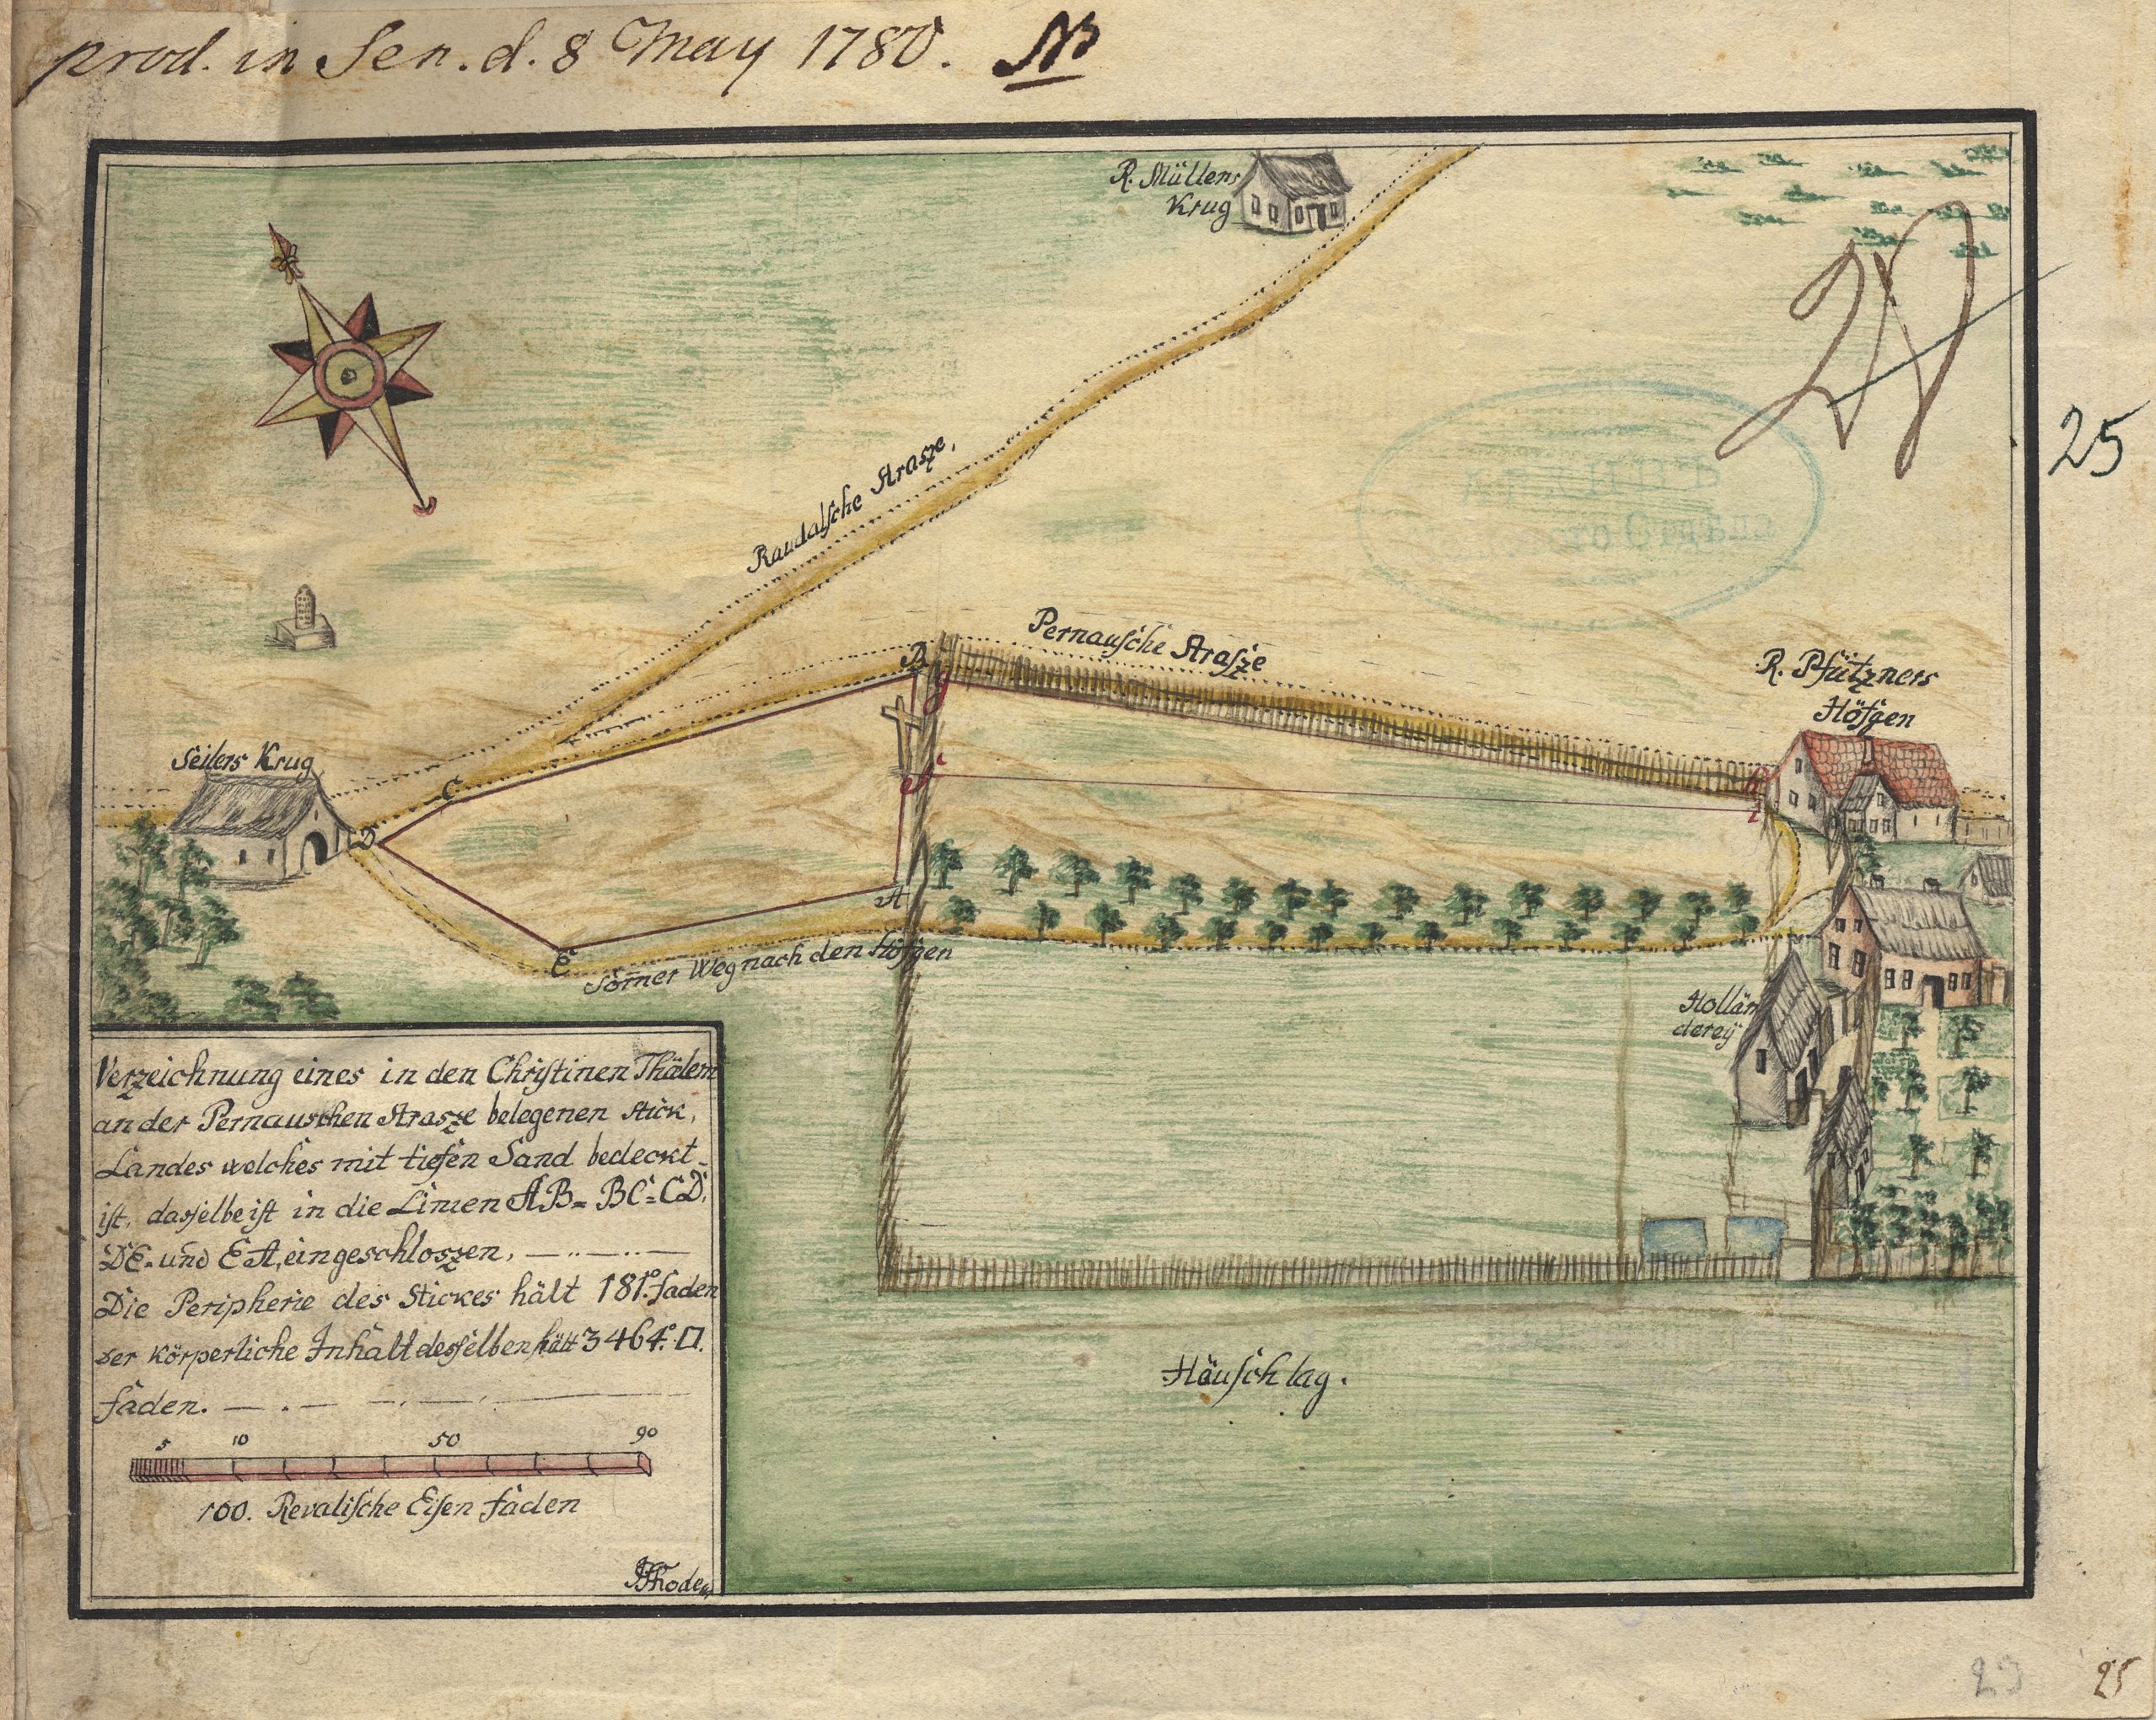 prod. in Sen. d. 8 May 1780. NB
R. Müllens
Krug
25
Raudalsche Strasze,
Pernausche Strasze
R. Pfützners
Höfgen
Seilers Krug
B
g
C
D
A
E
h
i
Sömer Weg nach den Höfgen
Hollän
dereÿ
Verzeichnung eines in den Christinen Thälern
an der Pernauschen Strasze belegenen Stick,
Landes welches mit tiefen Sand bedeckt
ist, dasselbe ist in die Linien AB= BC= CD,
DE= und EA, eingeschloszen,
Die Peripherie des Stickes hält 181° faden
der körperliche Inhalt desselben hält 3464° □.
faden.
5 10 50 90
100. Revalische Eisen faden
Häuschlag.
25